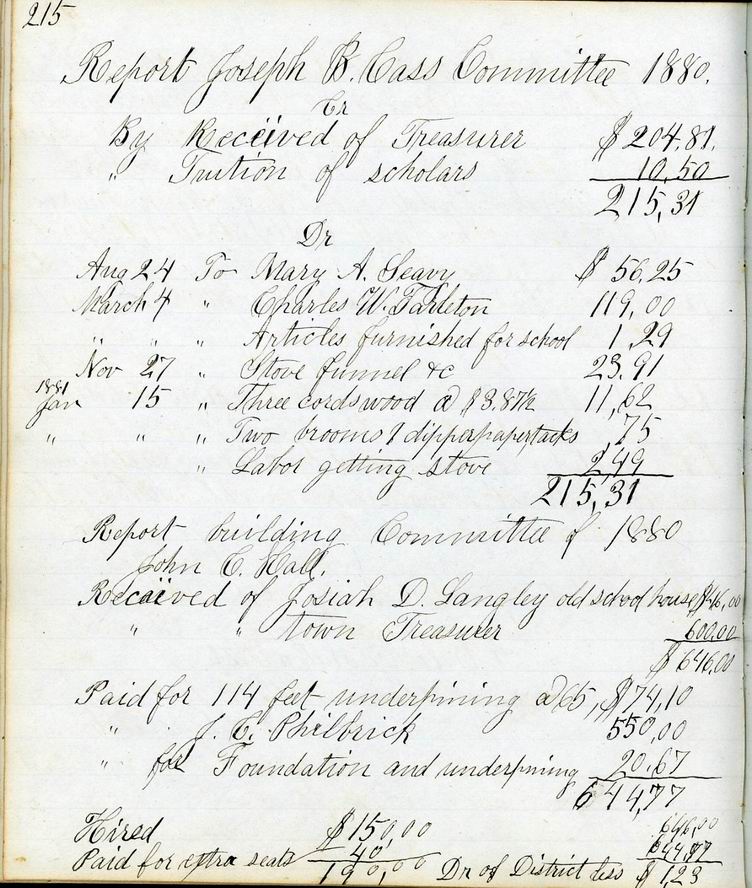 215
Report Joseph B. Cass Committee 1880.
Cr
By Received of Treasurer $204.81.
" Tuition of scholars 10.50
215,31
Dr
Aug 24 To Mary A. Seavy $ 56.25
March 4 " Charles W. Tarleton 119,00
" " " Articles furnished for school 1,29
Nov 27 " Stove funnel &c 23.91
1881
Jan 15 " Three cords wood @ $3.87½ 11,62
" " " Two brooms 1 dipper paper tacks ,75
" Labor getting stove 2,49
215,31
Report building Committee of 1880
John C. Hall.
Received of Josiah D. Langley old school house $46,00
" " town Treasurer 600.00
$646,00
Paid for 114 feet underpining @65, $74,10
" J. C. Philbrick 550,00
" for Foundation and underpining 20.67
644,77
Hired $150,00 646,00
Paid for extra seats 40 644,77
190,00 Dr of District less $ 123